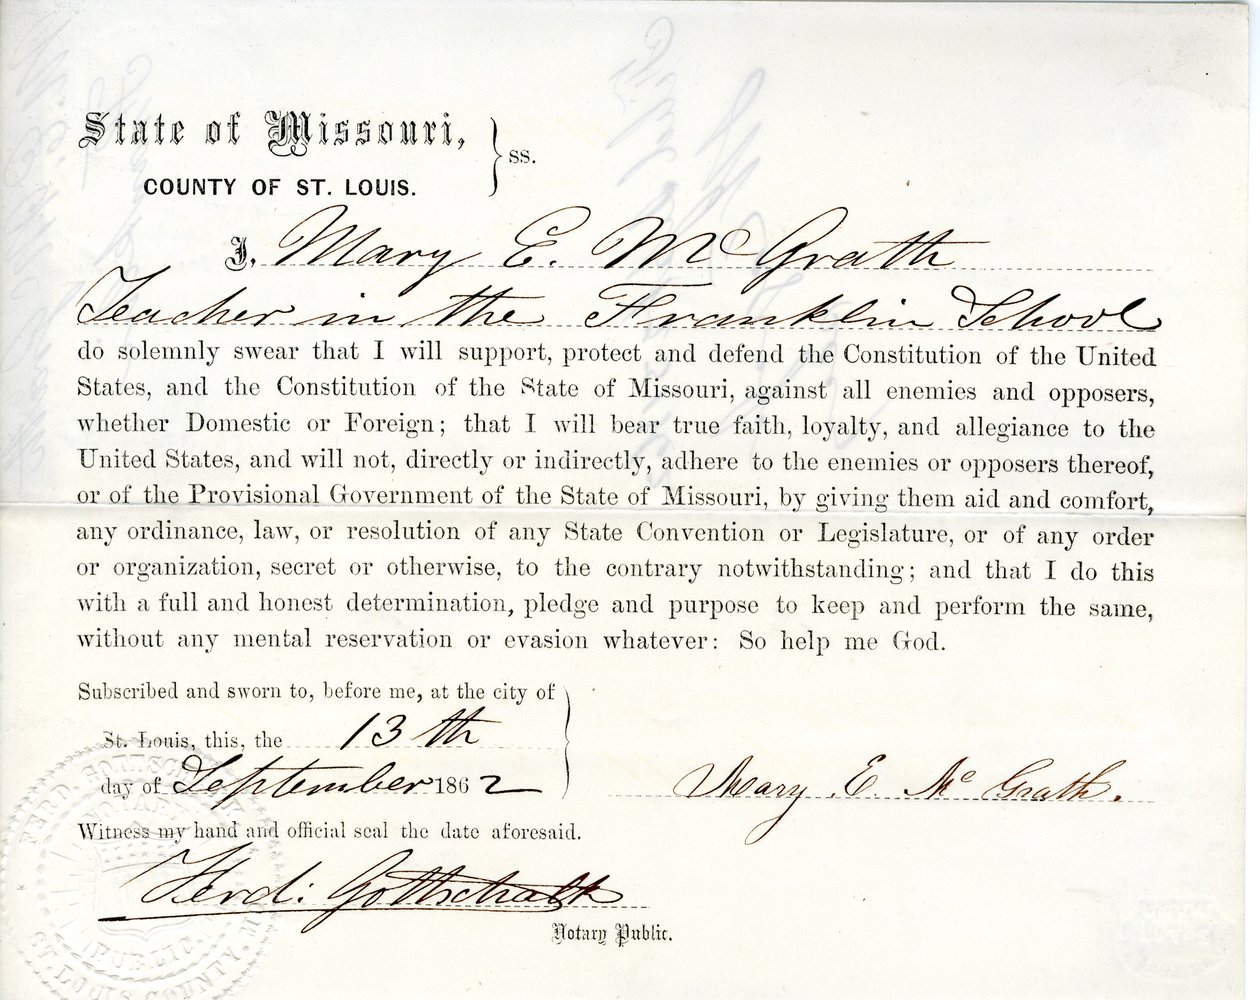 State of Missouri, } ss.
COUNTY OF ST. LOUIS.
I, Mary E. McGrath
Teacher in the Franklin School
do solemnly swear that I will support, protect and defend the Constitution of the United
States, and the Constitution of the State of Missouri, against all enemies and opposers,
whether Domestic or Foreign; that I will bear true faith, loyalty, and allegiance to the
United States, and will not, directly or indirectly, adhere to the enemies or opposers thereof,
or of the Provisional Government of the State of Missouri, by giving them aid and comfort,
any ordinance, law, or resolution of any State Convention or Legislature, or of any order
or organization, secret or otherwise, to the contrary notwithstanding; and that I do this
with a full and honest determination, pledge and purpose to keep and perform the same,
without any mental reservation or evasion whatever: So help me God.
Subscribed and sworn to, before me, at the city of
St. Louis, this, the 13th
day of September 1862
Mary E. McGrath.
Witness my hand and official seal the date aforesaid.
Ferd: Gottschalk
Notary Public.
FERD. GOTTSCHALK
NOTARY
PUBLIC
ST. LOUIS COUNTY, MO